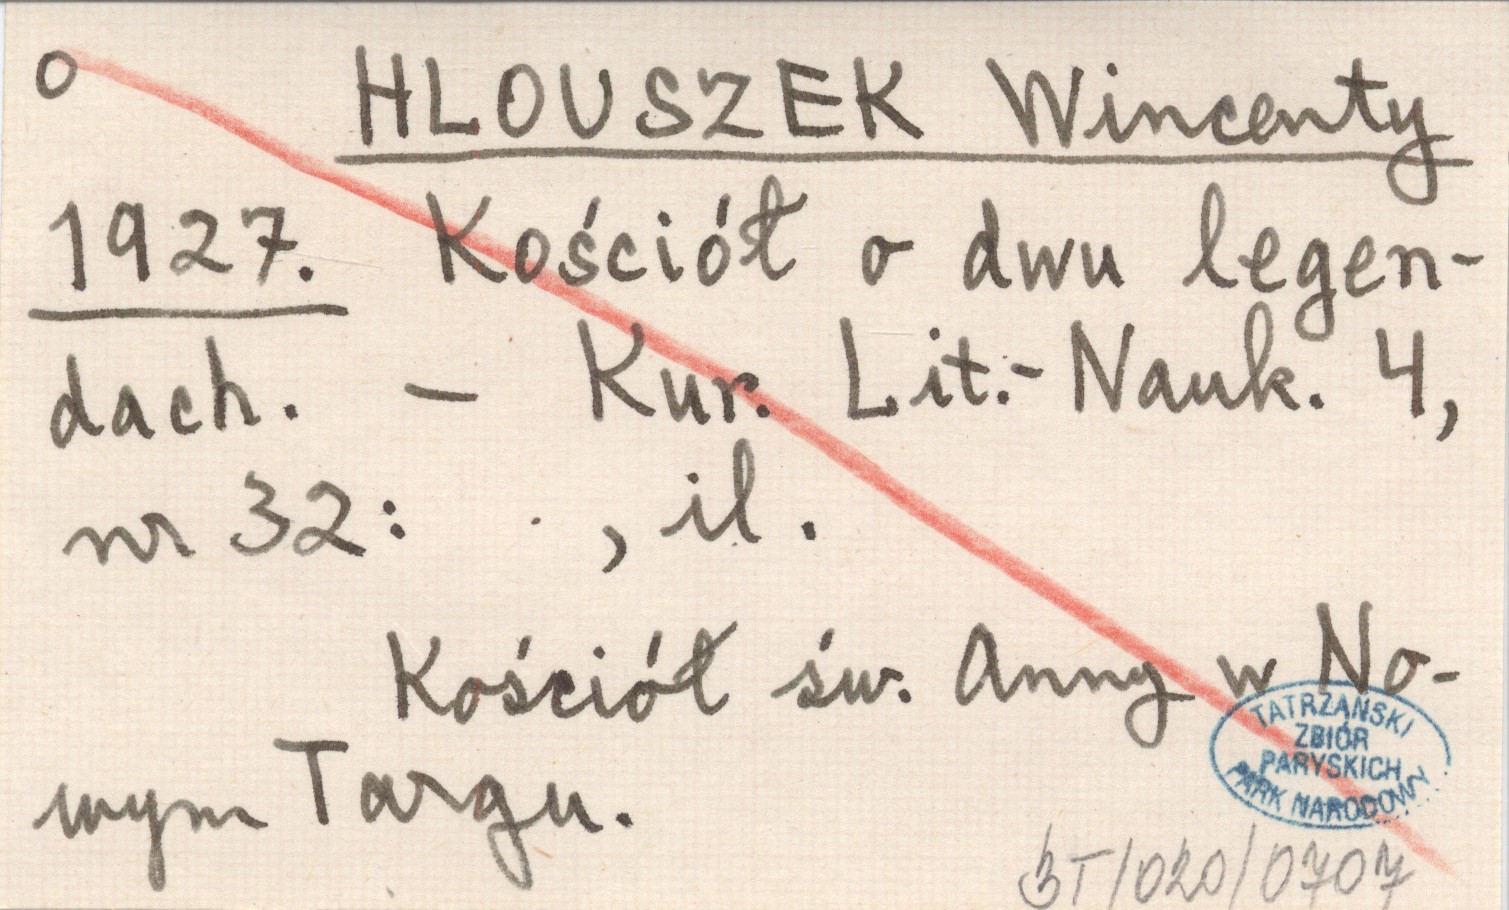 o HLOUSZEK Wincenty
1927. Kościół o dwu legen-
dach. - Kur. Lit.-Nauk. 4,
nr 32: . , il.
Kościół św. Anny w No-
wym Targu.
TATRZAŃSKI
ZBIÓR
PARYSKICH
PARK NARODOWY
BT/020/0707